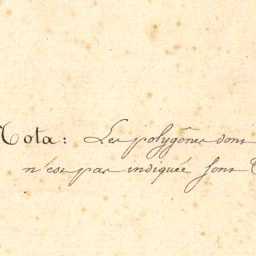 Nota: Les polygônes dont
n'est pas indiquée sont